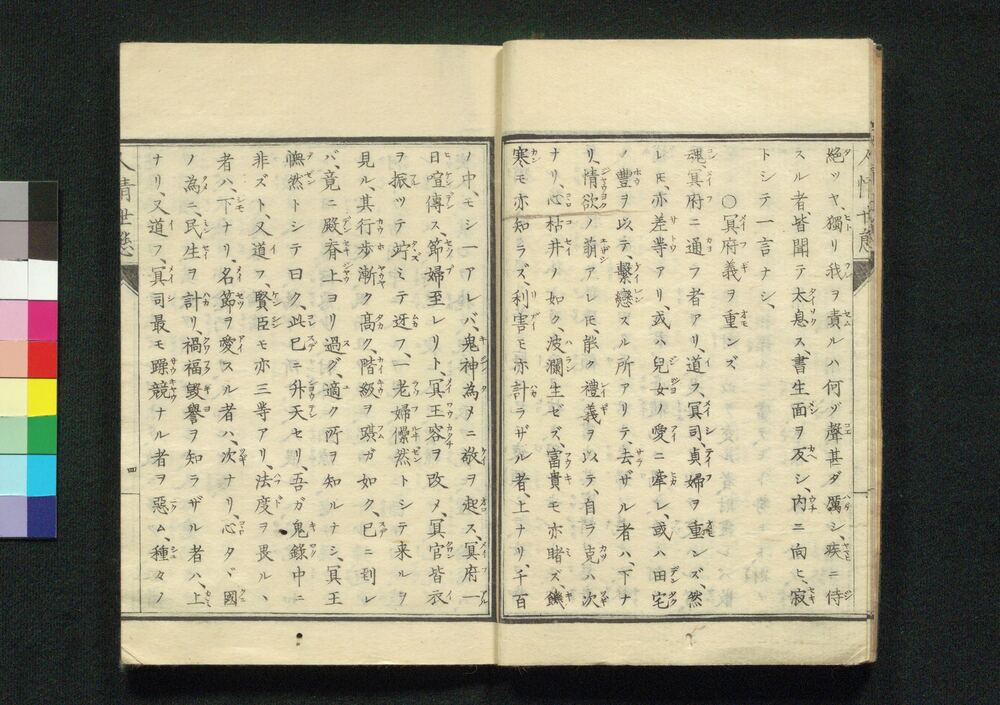 絶ツヤ、獨リ我ヲ責ルハ何ゾ聲甚ダ厲シ、疾ニ侍
スル者、皆聞テ太息ス、書生面ヲ反シ、内ニ向ヒ、寂
トシテ一言ナシ、
○冥府義ヲ重ンズ
魂冥府ニ通フ者アリ、道フ、冥司、貞婦ヲ重ンズ、然
レ𪜈、亦差等アリ、或ハ兒女ノ愛ニ牽レ、或ハ田宅
ノ豐ヲ以テ、繋戀スル所アリテ、去ザル者ハ、下ナ
リ、情欲ノ萌アレ𪜈、能ク禮義ヲ以テ、自ラ克ハ次
ナリ、心枯井ノ如ク、波瀾生ゼズ、富貴モ亦睹ズ、饑
寒モ亦知ラズ、利害モ亦計ラザル者、上ナリ、千百
ノ中、モシ一アレバ、鬼神為メニ敬ヲ起ス、冥府一
日喧傳ス、節婦至レリト、冥王容ヲ改メ、冥官皆衣
ヲ振ツテ竚ミテ迓フ、一老婦儽然トシテ来ルヲ
見ル、其行歩漸ク髙ク、階級ヲ𨂻ガ如ク、已ニ到レ
バ、竟ニ殿脊上ヨリ過グ、適ク所ヲ知ルナシ、冥王
憮然トシテ曰ク、此已ニ升天セリ、吾ガ鬼籙中ニ
非ズト、又道フ、賢臣モ亦三等アリ、法度ヲ畏ル、
者ハ、下ナリ、名節ヲ愛スル者ハ、次ナリ、心タヾ國
ノ為ニ、民生ヲ計リ、禍福毀譽ヲ知ラザル者ハ、上
ナリ、又道フ、冥司最モ躁競ナル者ヲ惡ム、種々ノ
人情世態
四